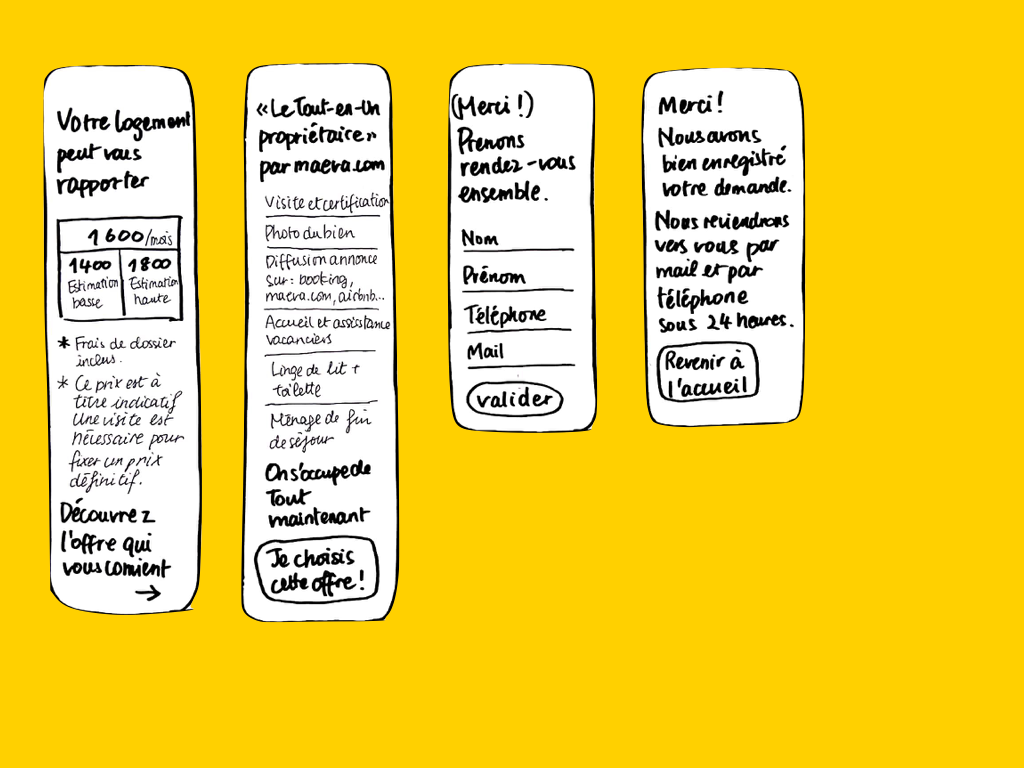 Votre logement
peut vous
rapporter
1600/mois
1400
Estimation
basse
1800
Estimation
haute
* Frais de dossier
inclus.
* Ce prix est à
titre indicatif
Une visite est
nécessaire pour
fixer un prix
définitif.
Découvrez
l'offre qui
vous convient
→
«Le Tout-en-Un
propriétaire»
par maeva.com
Visite et certification
Photo du bien
Diffusion annonce
sur : booking,
maeva.com, airbnb...
Accueil et assistance
vacanciers
Linge de lit +
toilette
Ménage de fin
de séjour
On s'occupe de
Tout
maintenant
Je choisis
cette offre !
(Merci !)
Prenons
rendez-vous
ensemble.
Nom
Prénom
Téléphone
Mail
valider
Merci !
Nous avons
bien enregistré
votre demande.
Nous reviendrons
vers vous par
mail et par
téléphone
sous 24 heures.
Revenir à
l'accueil